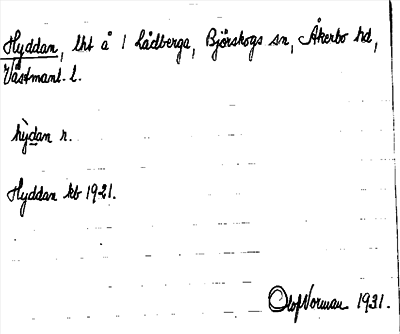 Hyddan, lht å 1 Lådberga, Björskogs sn, Åkerbo hd,
Västmanl. l.
hỳdan n.
Hyddan kb 1921.
Olof Norman 1931.